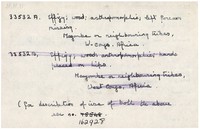 33532 A. Effigy; wood, anthropomorphic, left forearm
missing.
Mayombe or neighbouring tribes,
W. Congo, Africa.
33532 B. Effigy, wood, anthropomorphic, hands
placed on hips.
Mayombe or neighbouring tribes,
West Congo, Africa
(For description of use of both the above
see no.
162928